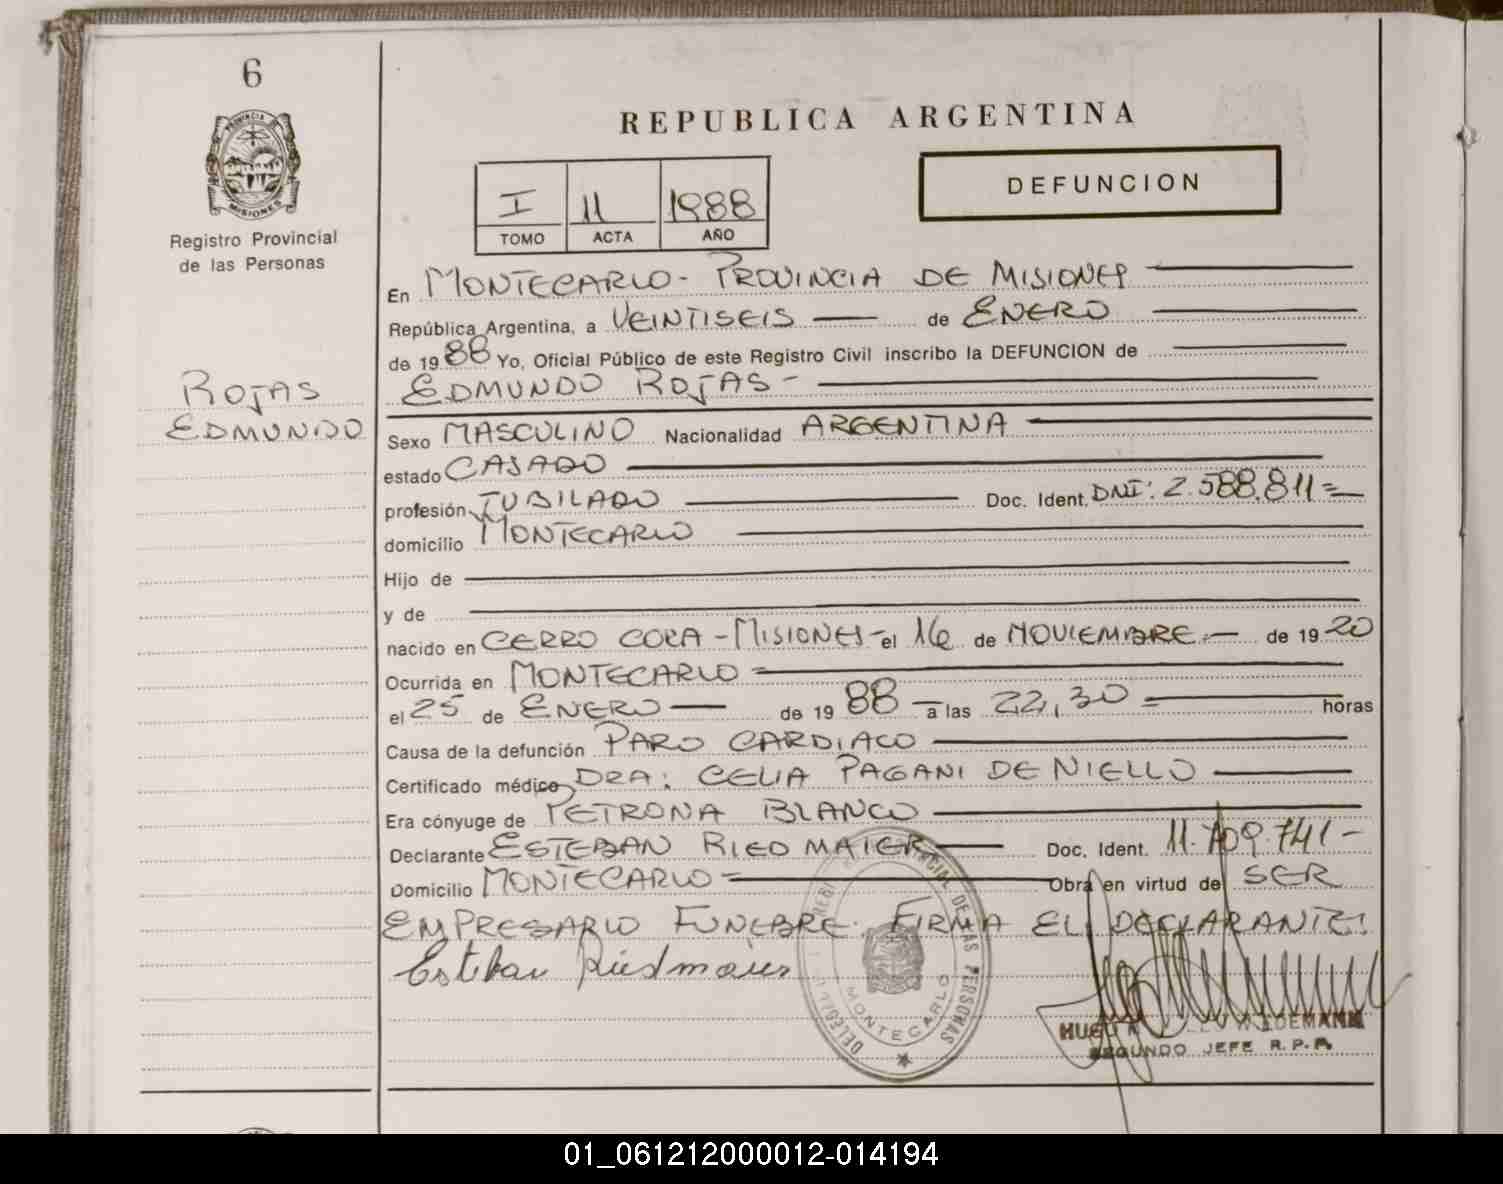 6
PROVINCIA DE
MISIONES
Registro Provincial
de las Personas
ROJAS
EDMUNDO
REPUBLICA ARGENTINA
I 11 1988
TOMO ACTA AÑO
DEFUNCION
En MONTECARLO - PROVINCIA DE MISIONES
República Argentina, a VEINTISEIS — de ENERO
de 1988 Yo, Oficial Público de este Registro Civil inscribo la DEFUNCION de
EDMUNDO ROJAS -
Sexo MASCULINO Nacionalidad ARGENTINA
estado CASADO
profesión JUBILADO Doc. Ident. DNI: 2.588.811=
domicilio MONTECARLO
Hijo de
y de
nacido en CERRO CORA - MISIONES - el 16 de NOVIEMBRE.- de 1920
Ocurrida en MONTECARLO =
el 25 de ENERO — de 1988 - a las 22,30 = horas
Causa de la defunción PARO CARDIACO
Certificado médico DRA: CELIA PAGANI DE NIELLO
Era cónyuge de PETRONA BLANCO
Declarante ESTEBAN RIEDMAIER Doc. Ident. 11.709.741-
Domicilio MONTECARLO = Obra en virtud de SER
EMPRESARIO FUNEBRE. FIRMA EL DECLARANTE:
Esteban Riedmaier
DE LAS PERSONAS
MONTECARLO
HUGO
SEGUNDO JEFE R.P.P.
01_061212000012-014194